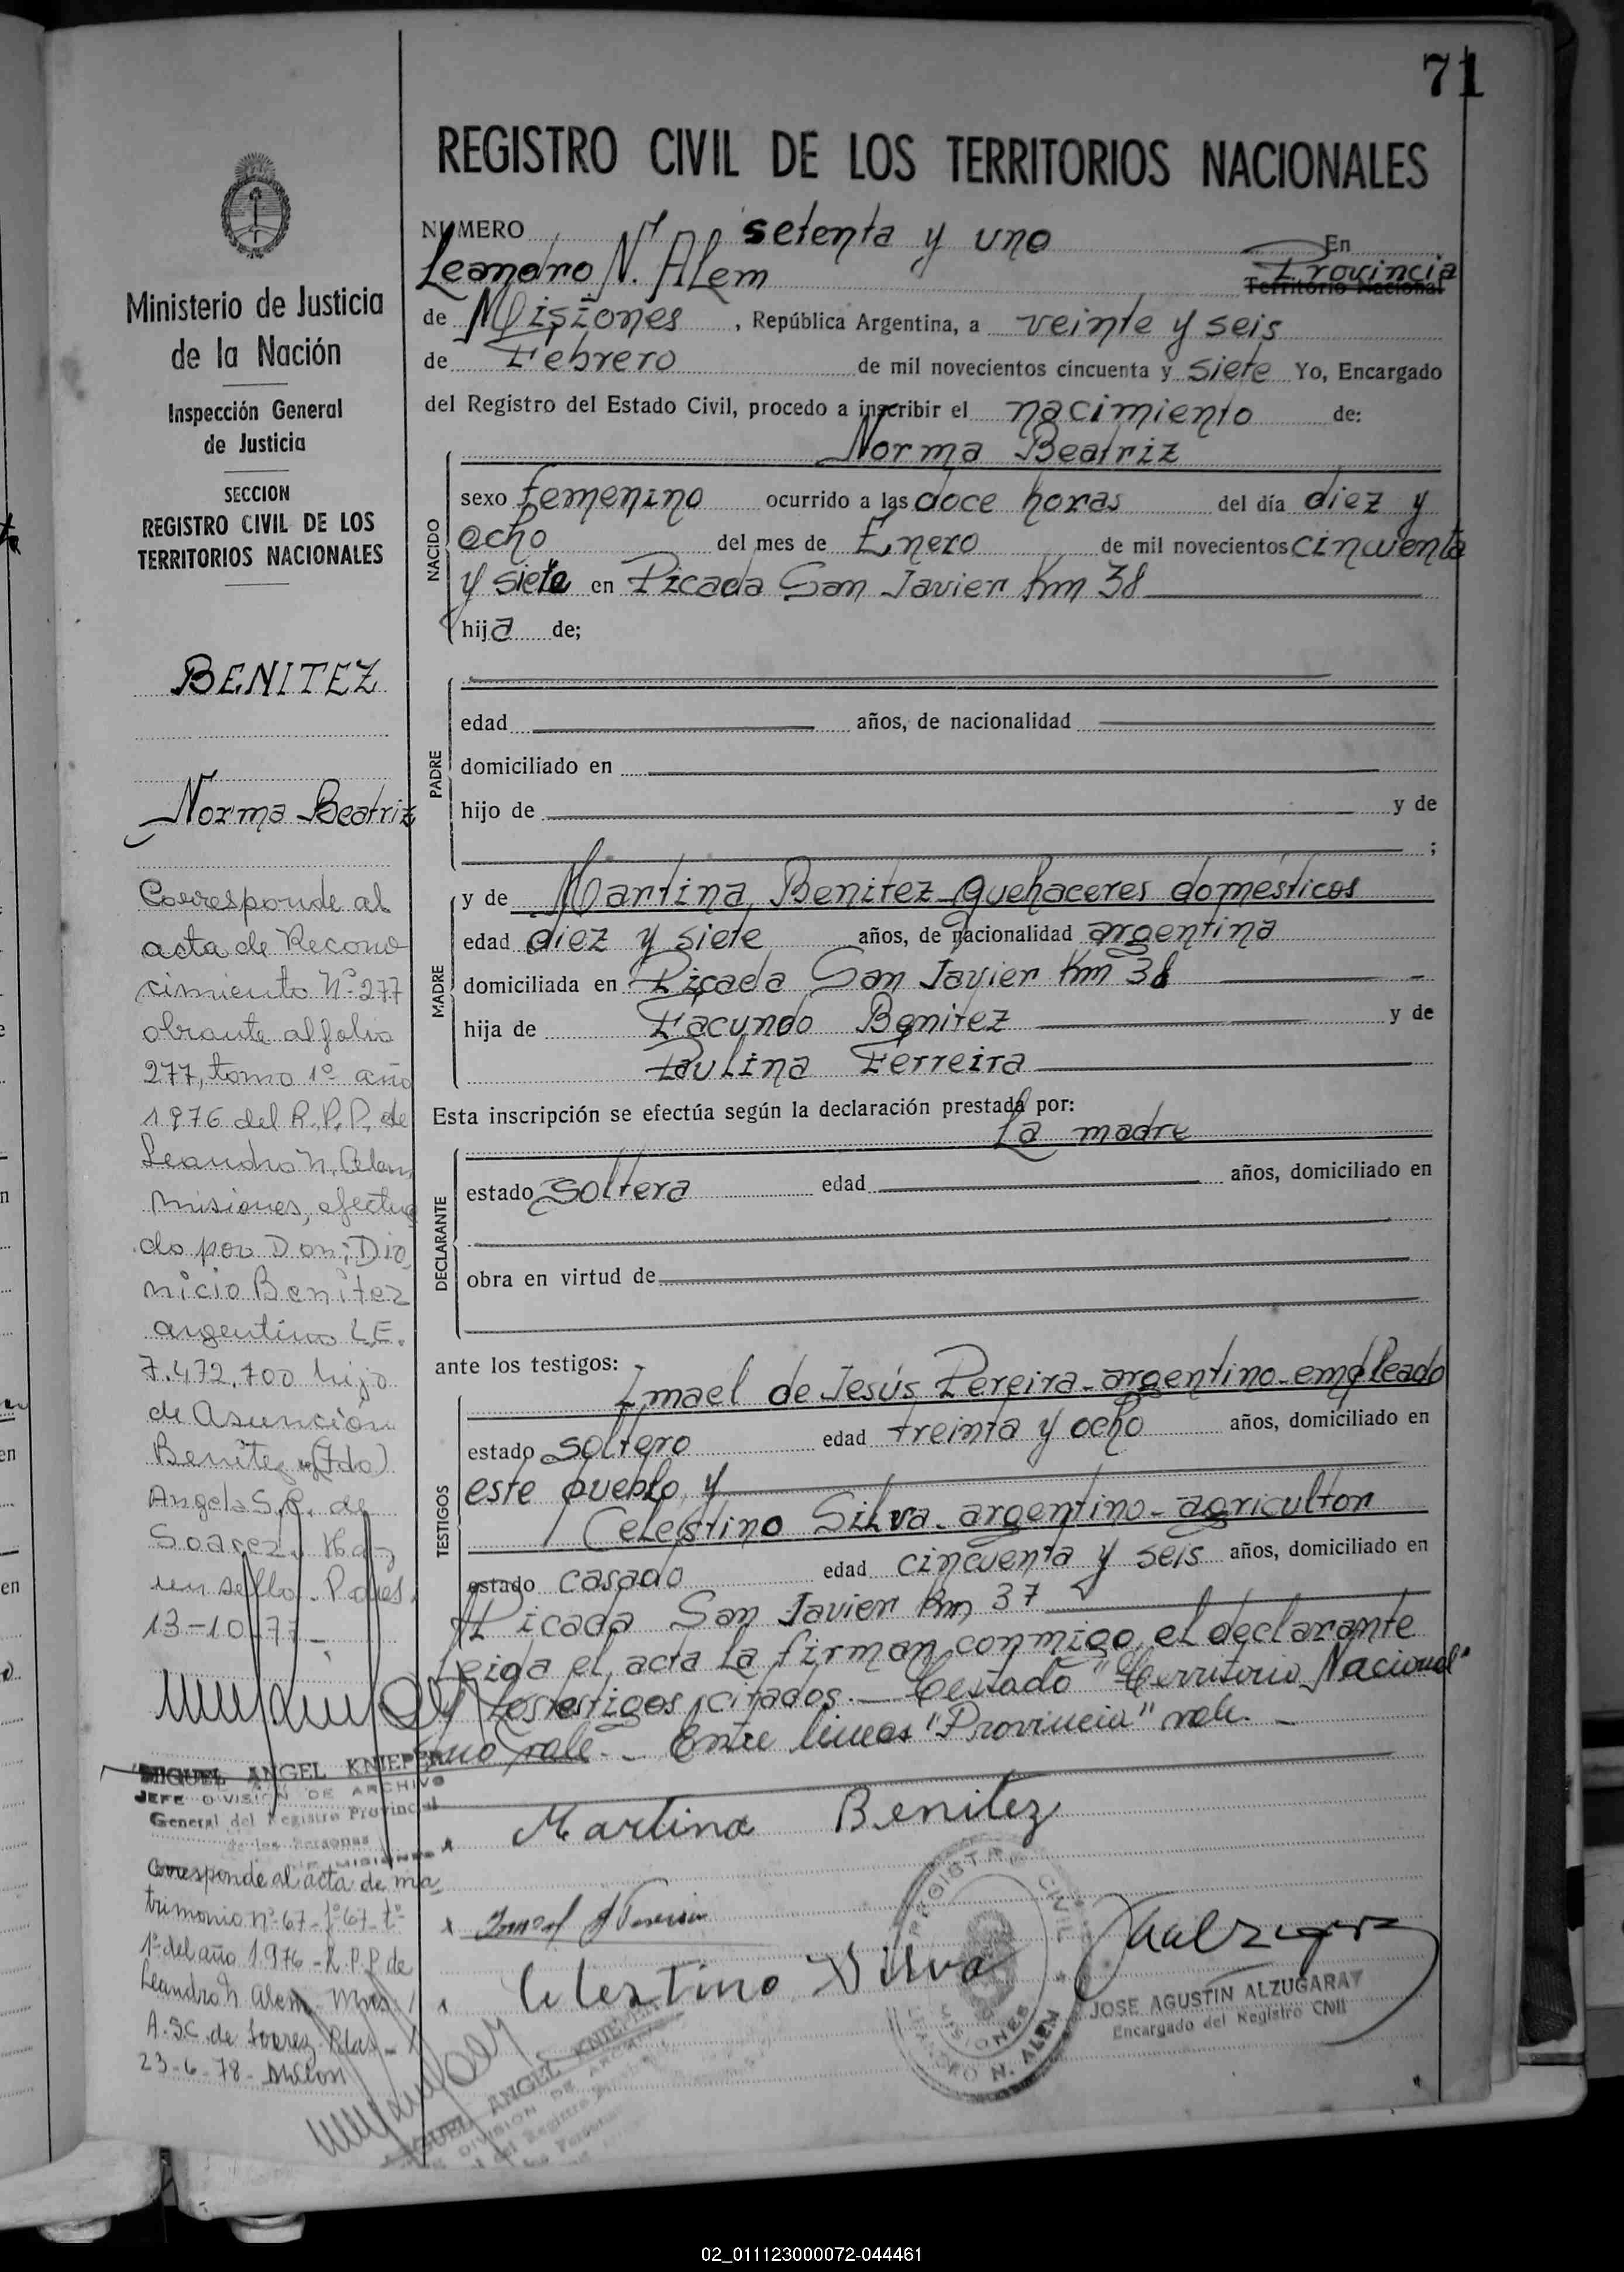 71
REGISTRO CIVIL DE LOS TERRITORIOS NACIONALES
NUMERO setenta y uno En
Leandro N. Alem Provincia
Territorio Nacional
de Misiones, República Argentina, a veinte y seis
de Febrero de mil novecientos cincuenta y siete Yo, Encargado
del Registro del Estado Civil, procedo a inscribir el nacimiento de:
Norma Beatriz
NACIDO
sexo femenino ocurrido a las doce horas del día diez y
ocho del mes de Enero de mil novecientos cincuenta
y siete en Picada San Javier Km 38
hija de;
PADRE
edad años, de nacionalidad
domiciliado en
hijo de y de
;
MADRE
y de Martina Benitez quehaceres domésticos
edad diez y siete años, de nacionalidad argentina
domiciliada en Picada San Javier Km 38
hija de Facundo Benitez y de
Paulina Ferreira
Esta inscripción se efectúa según la declaración prestada por:
La madre
DECLARANTE
estado soltera edad años, domiciliado en
obra en virtud de
ante los testigos:
TESTIGOS
Imael de Jesús Pereira - argentino - empleado
estado soltero edad treinta y ocho años, domiciliado en
este pueblo y
Celestino Silva - argentino - agricultor
estado casado edad cincuenta y seis años, domiciliado en
Picada San Javier Km 37
Leida el acta la firman conmigo, el declarante
y los testigos citados. — Testado "Territorio Nacional"
no vale. - Entre lineas "Provincia" vale. -
Martina Benitez
Celestino Silva
REGISTRO CIVIL
MISIONES
LEANDRO N. ALEM
JOSE AGUSTIN ALZUGARAY
Encargado del Registro Civil
Ministerio de Justicia
de la Nación
Inspección General
de Justicia
SECCION
REGISTRO CIVIL DE LOS
TERRITORIOS NACIONALES
BENITEZ
Norma Beatriz
Corresponde al
acta de Recono
cimiento Nº 277
obrante al folio
277, tomo 1º año
1976 del R.P.P. de
Leandro N. Alem
Misiones, efectua
do por Don: Dio
nicio Benitez
argentino L.E.
7.472.700 hijo
de Asunción
Benitez (fdo)
Angela S.C. de
Soarez. Hay
un sello. Pdas.
13-10-77 -
MIGUEL ANGEL KNIEPER
JEFE DIVISION DE ARCHIVO
General del Registro Provincial
de las Personas
MISIONES
Corresponde al acta de ma
trimonio nº 67 - fº 67 - tº
1º del año 1976 - R.P.P. de
Leandro N. Alem - Mnes
A.S.C. de Soarez. Pdas -
23-6-78 -
MIGUEL ANGEL KNIEPER
DIVISION DE ARCHIVO
02_011123000072-044461